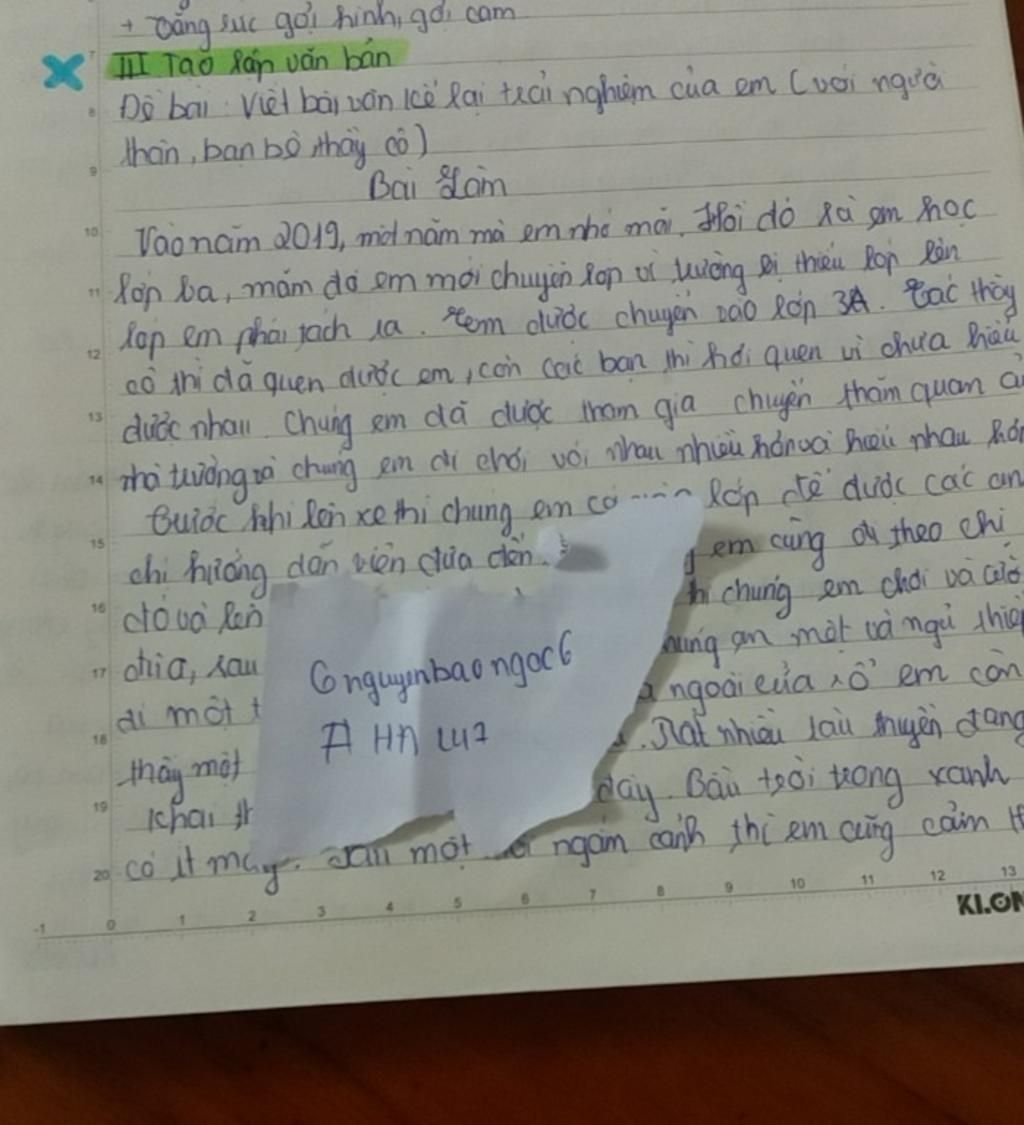 + Tăng sức gợi hình, gợi cảm
III Tạo lập văn bản
Đề bài: Viết bài văn kể lại trải nghiệm của em (với người
thân, bạn bè, thầy cô)
Bài làm
Vào năm 2019, một năm mà em nhớ mãi. Hồi đó là em học
lớp ba, năm đó em mới chuyển lớp vì trường bị thiếu lớp lên
lớp em phải tách ra. Em được chuyển vào lớp 3A. Các thầy
cô thì đã quen được em, còn các bạn thì hơi quen vì chưa hiểu
được nhau. Chúng em đã được tham gia chuyến thăm quan ở
nhà trường và chúng em đi chơi với nhau nhiều hơn và hiểu nhau hơn
Trước khi lên xe thì chúng em có lớp để được các an
chị hướng dẫn viên đưa đến. em cũng đi theo chị
đó và lên thì chúng em chơi và cười
chia, sau chúng em mệt và ngủ thiếp
đi một ngoài cửa sổ em còn
thấy một Rất nhiều tàu thuyền đang
khai th đáy. Bầu trời trong xanh
có ít mây. Sau một hồi ngắm cảnh thì em cũng cảm th
6nguyenbaongoc6
A HN 147
-1 0 1 2 3 4 5 6 7 8 9 10 11 12 13
KLON